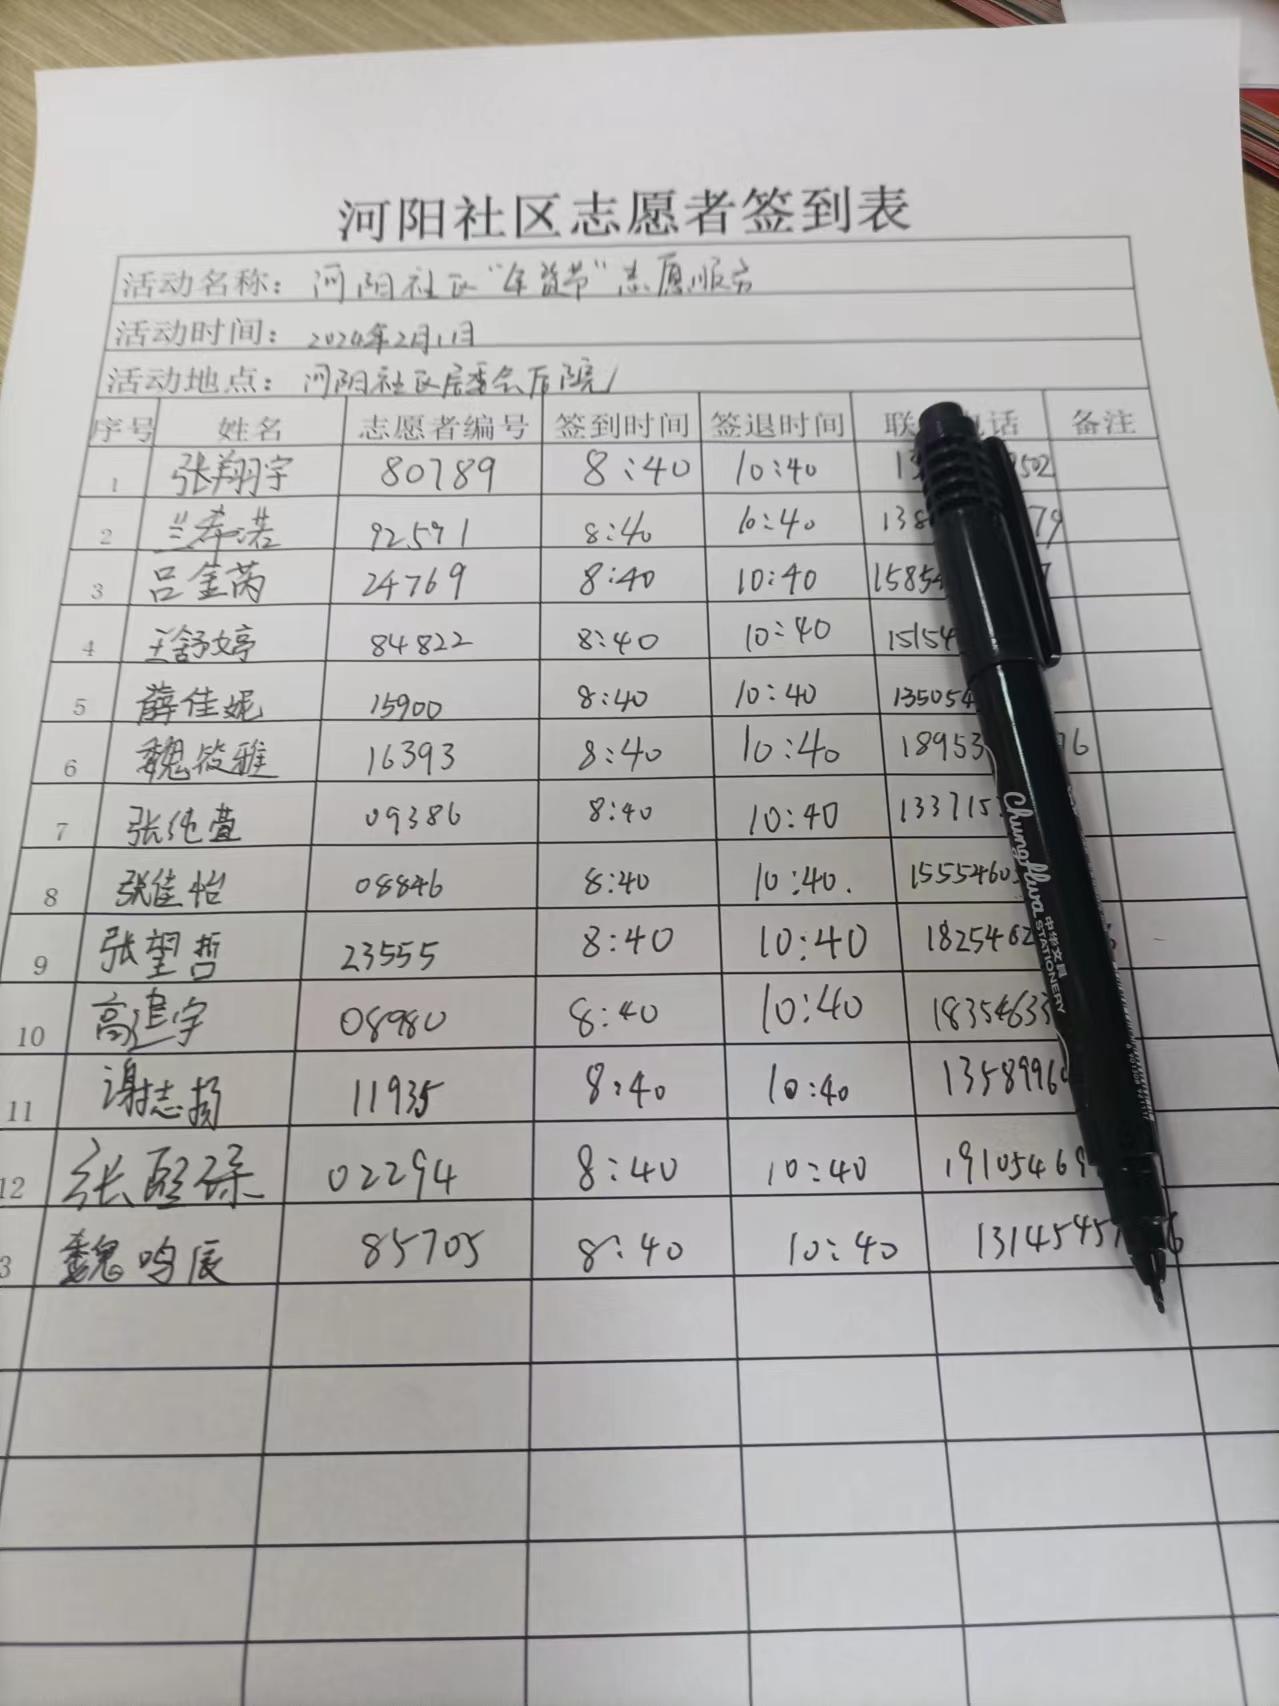 河阳社区志愿者签到表
活动名称：河阳社区“年货节”志愿服务
活动时间：2024年2月1日
活动地点：河阳社区居委会后院
序号 姓名 志愿者编号 签到时间 签退时间 联 电话 备注
1 张翔宇 80789 8:40 10:40 13 502
2 兰 92591 8:40 10:40 138 79
3 吕金芮 24769 8:40 10:40 15854
4 王舒婷 84822 8:40 10:40 15154
5 薛佳妮 15900 8:40 10:40 135054
6 魏筱雅 16393 8:40 10:40 18953 96
7 张纯萱 09386 8:40 10:40 133715
8 张佳怡 08846 8:40 10:40. 15554603
9 张望哲 23555 8:40 10:40 1825462
10 高 宇 08980 8:40 10:40 18354633
11 谢志扬 11935 8:40 10:40 1358996
12 张 02294 8:40 10:40 19105469
3 魏鸣辰 85705 8:40 10:40 13145457 6
Chung Hwa 中华文具 STATIONERY